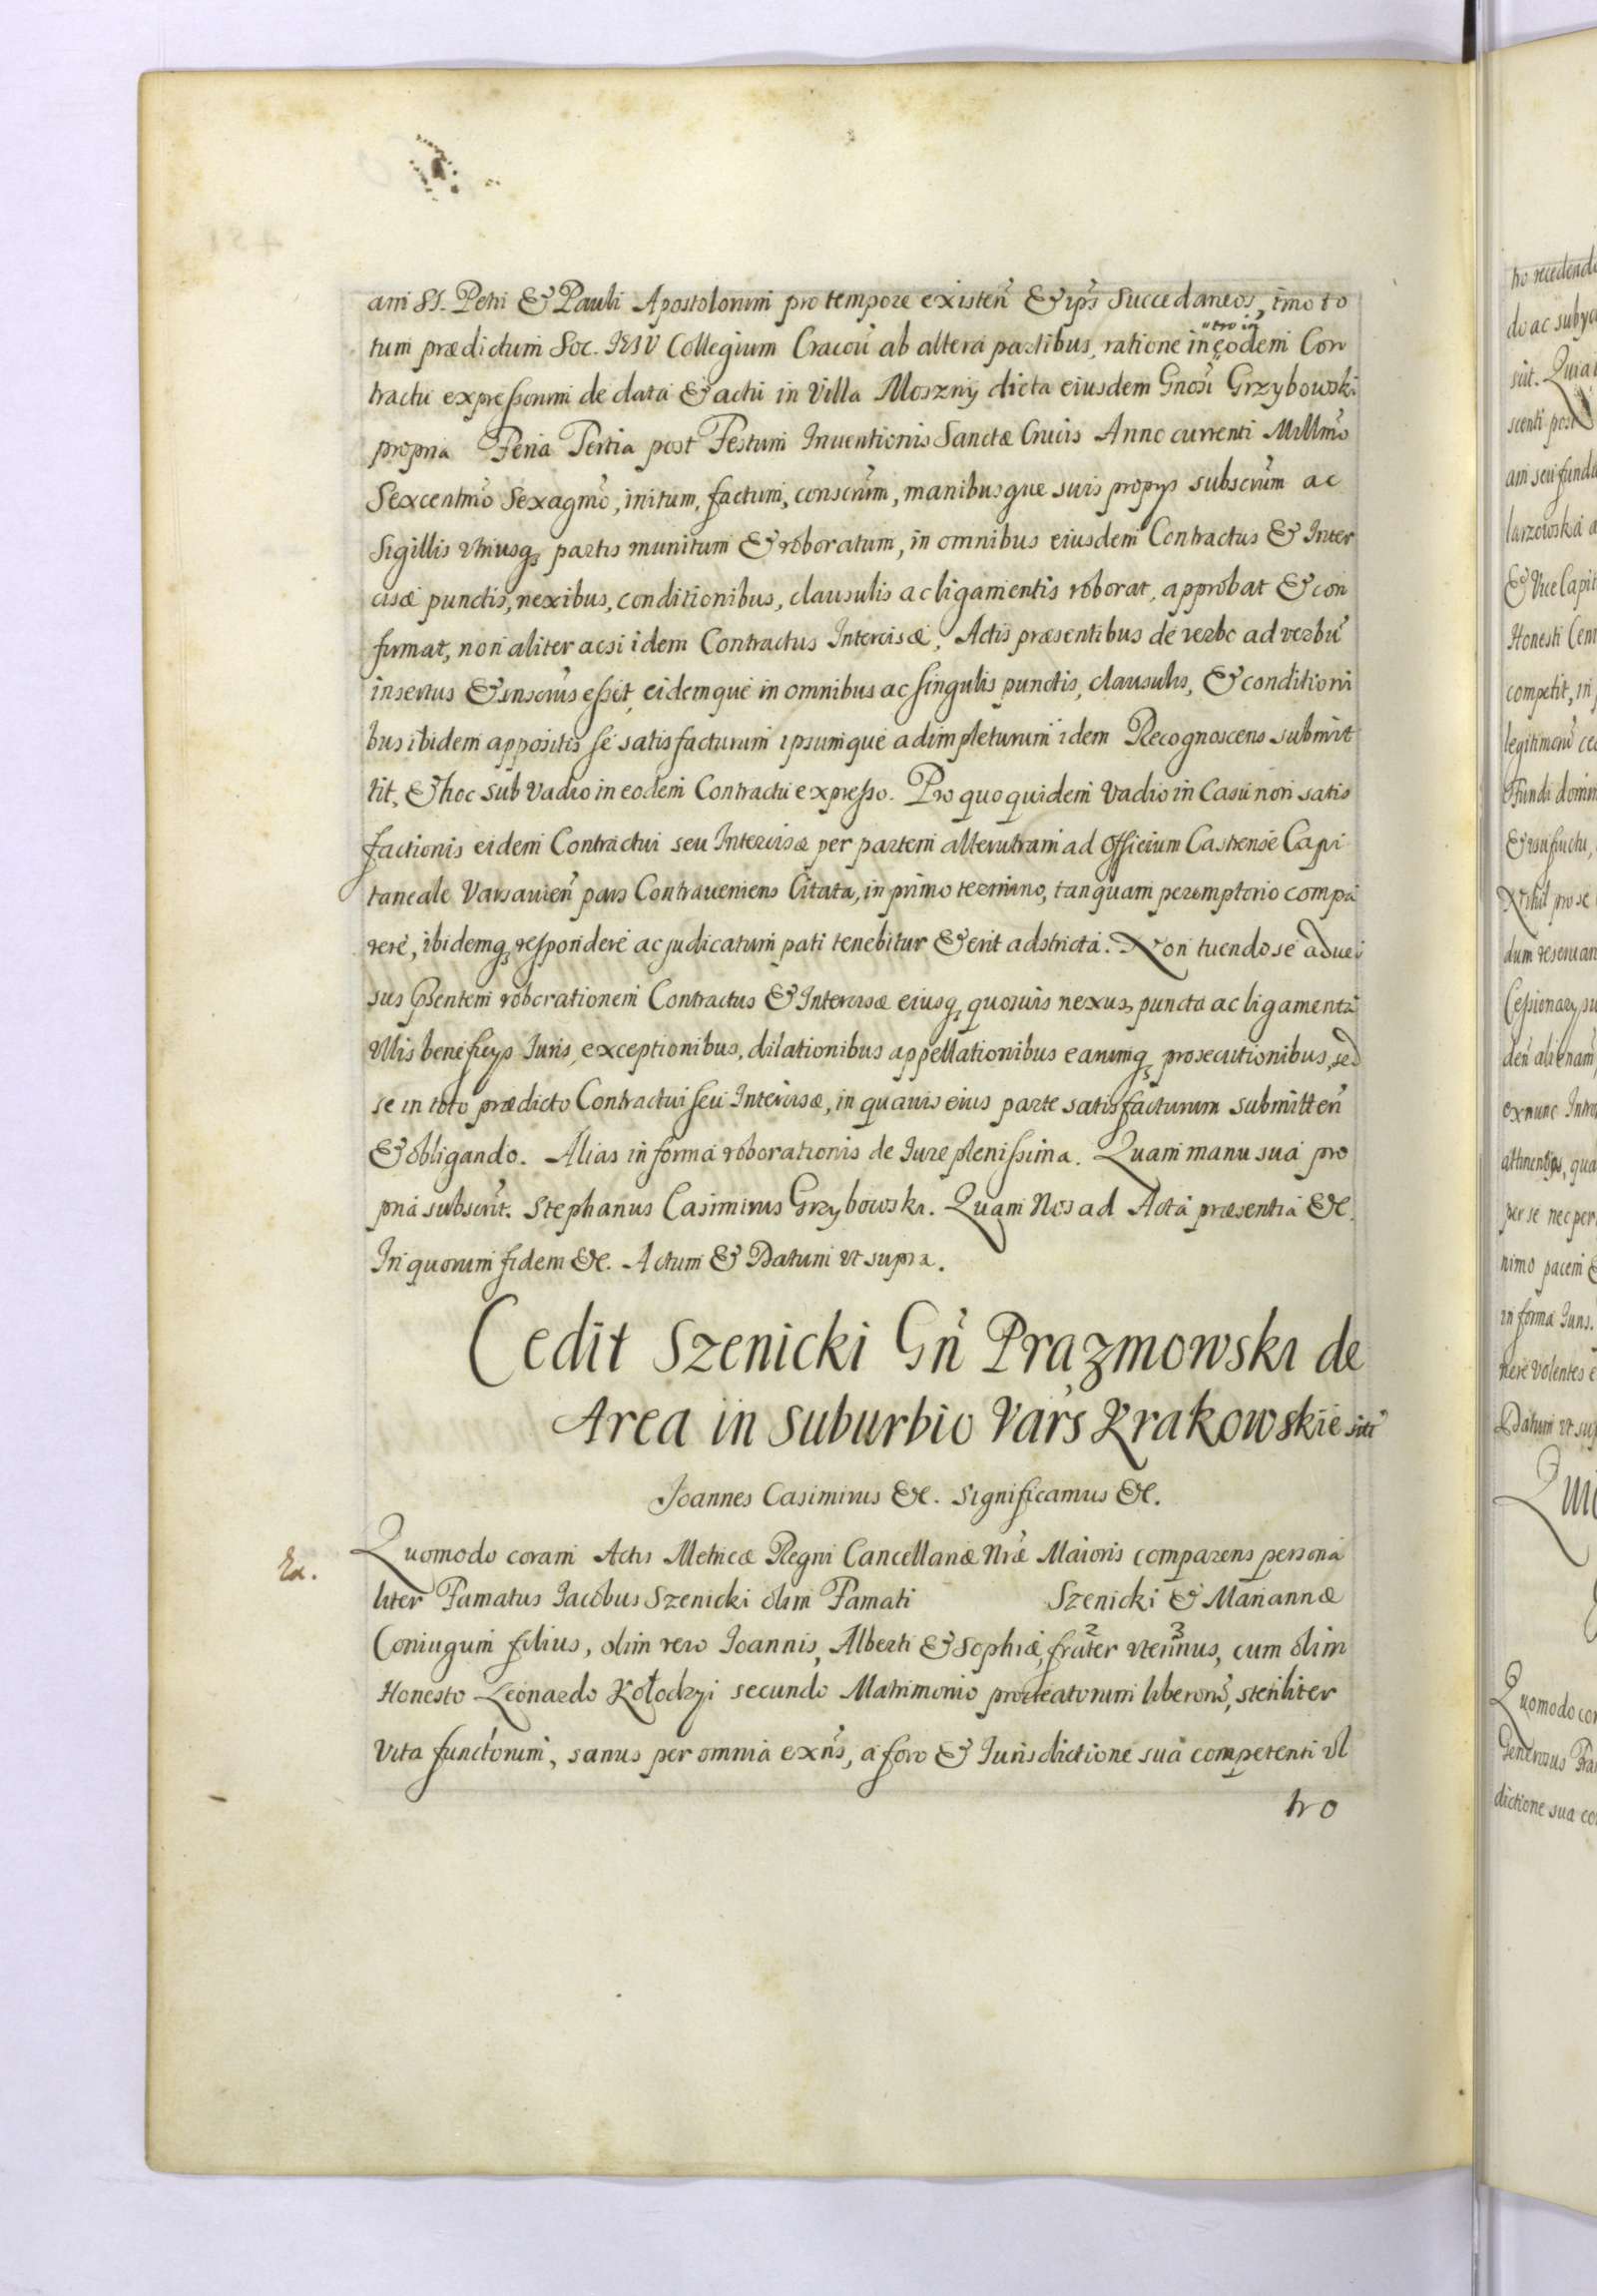 am SS. Petri & Pauli Apostolorum pro tempore existeñ & ip̃s Succedaneos, imo to
tum prædictum Soc. IESV Collegium Cracoũ ab altera partibus, ratione in tro in eodem Con
tractu expressorum de data & actu in Villa Moszny dicta eiusdem Gnosi Grzybowski
propria Feria Tertia post Festum Inuentionis Sanctæ Crucis Anno currenti Millmõ
Sexcentmõ Sexagmõ, initum, factum, conscrũm, manibusque suis proprys subscrũm ac
Sigillis vtriusq₃ partis munitum & roboratum, in omnibus eiusdem Contractus & Inter
cisæ punctis, nexibus, conditionibus, clausulis ac ligamentis roborat, approbat & con
firmat, non aliter acsi idem Contractus Intercisæ, Actis præsentibus de verbo ad verbũ
insertus & inscrũs esset, eidemque in omnibus ac singulis punctis, clausulis, & conditioni
bus ibidem appositis se satisfacturum ipsumque adimpleturum idem Recognoscens submit
tit, & hoc sub Vadio in eodem Contractu expresso. Pro quo quidem Vadio in Casu non satis
factionis eidem Contractui seu Intercisæ per partem alterutram ad Officium Castrense Capi
taneale Varsauieñ pars Contraueniens Citata, in primo termino, tanquam peremptorio compa
rere, ibidemq₃ respondere ac judicatum pati tenebitur & erit adstricta. Non tuendo se aduer
sus p̃sentem roborationem Contractus & Intercisæ eiusq₃ quosuis nexus, puncta ac ligamenta
Vllis beneficys Juris, exceptionibus, dilationibus appellationibus earumq₃ prosecutionibus, sed
se in toto prædicto Contractui seu Intercisæ, in quauis eius parte satisfacturum submitteñ
& obligando. Alias in forma roborationis de Jure plenissima. Quam manu sua pro
pria subscrĩt. Stephanus Casimirus Grzybowski. Quam Nos ad Acta præsentia &c.
In quorum fidem &c. Actum & Datum vt supra.
Cedit Szenicki Gñ Prazmowski de
Area in suburbio Vars̃ Krakowskie sita
Joannes Casimirus &c. Significamus &c.
Quomodo coram Actis Metricæ Regni Cancellariæ Nr̃æ Maioris comparens persona
Ex.
liter Famatus Jacobus Szenicki olim Famati Szenicki & Mariannæ
Coniugum filius, olim vero Joannis, Alberti & Sophiæ, frater 2 vterinus 3, cum olim
Honesto Leonardo Kołodzyi secundo Matrimonio procreatorum liberorũ, steriliter
Vita functorum, sanus per omnia exñs, a foro & Jurisdictione sua competenti vl
tro